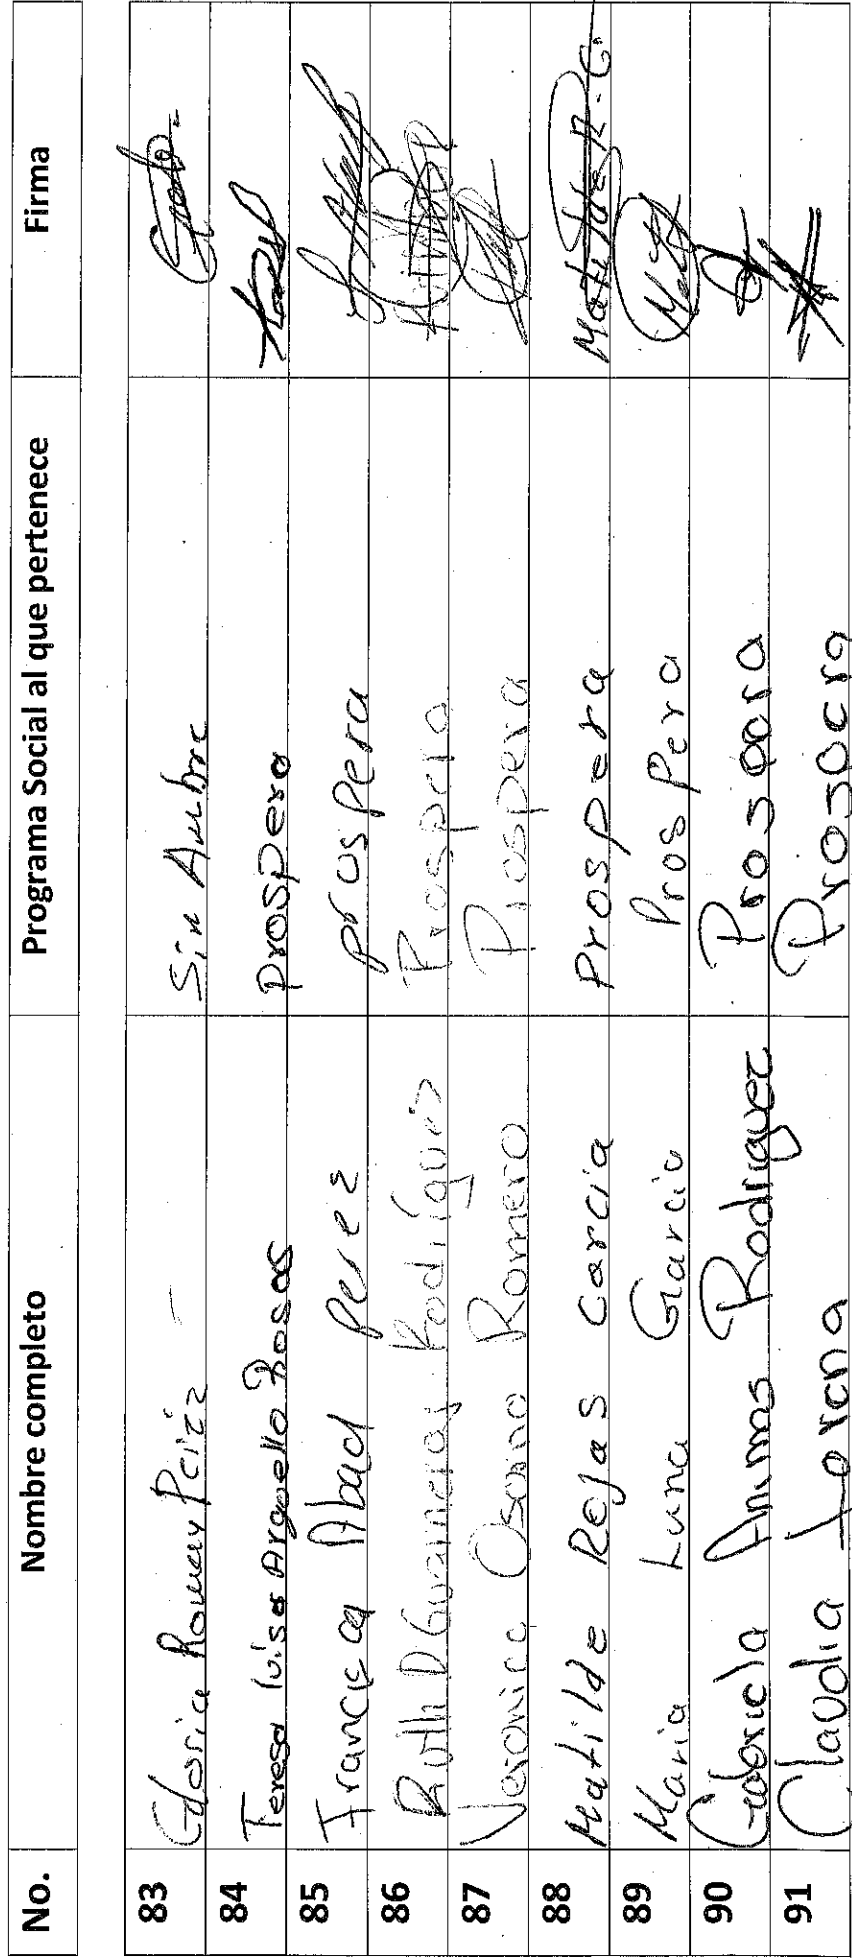 No. Nombre completo Programa Social al que pertenece Firma
83 Gloria Romero Perez Sin Ambre
84 Teresa luisa Arguello Rosas prospera
85 Francisca Abad Perez prospera
86 Ruth D Guarneros Rodríguez Prospera
87 Veronica Osorno Romero Prospera
88 Matilde Rojas Garcia Prospera Matilde R. G.
89 Maria Luna Garcia Prospera
90 Gabriela Animas Rodriguez Prospera
91 Claudia Lorena Prospera